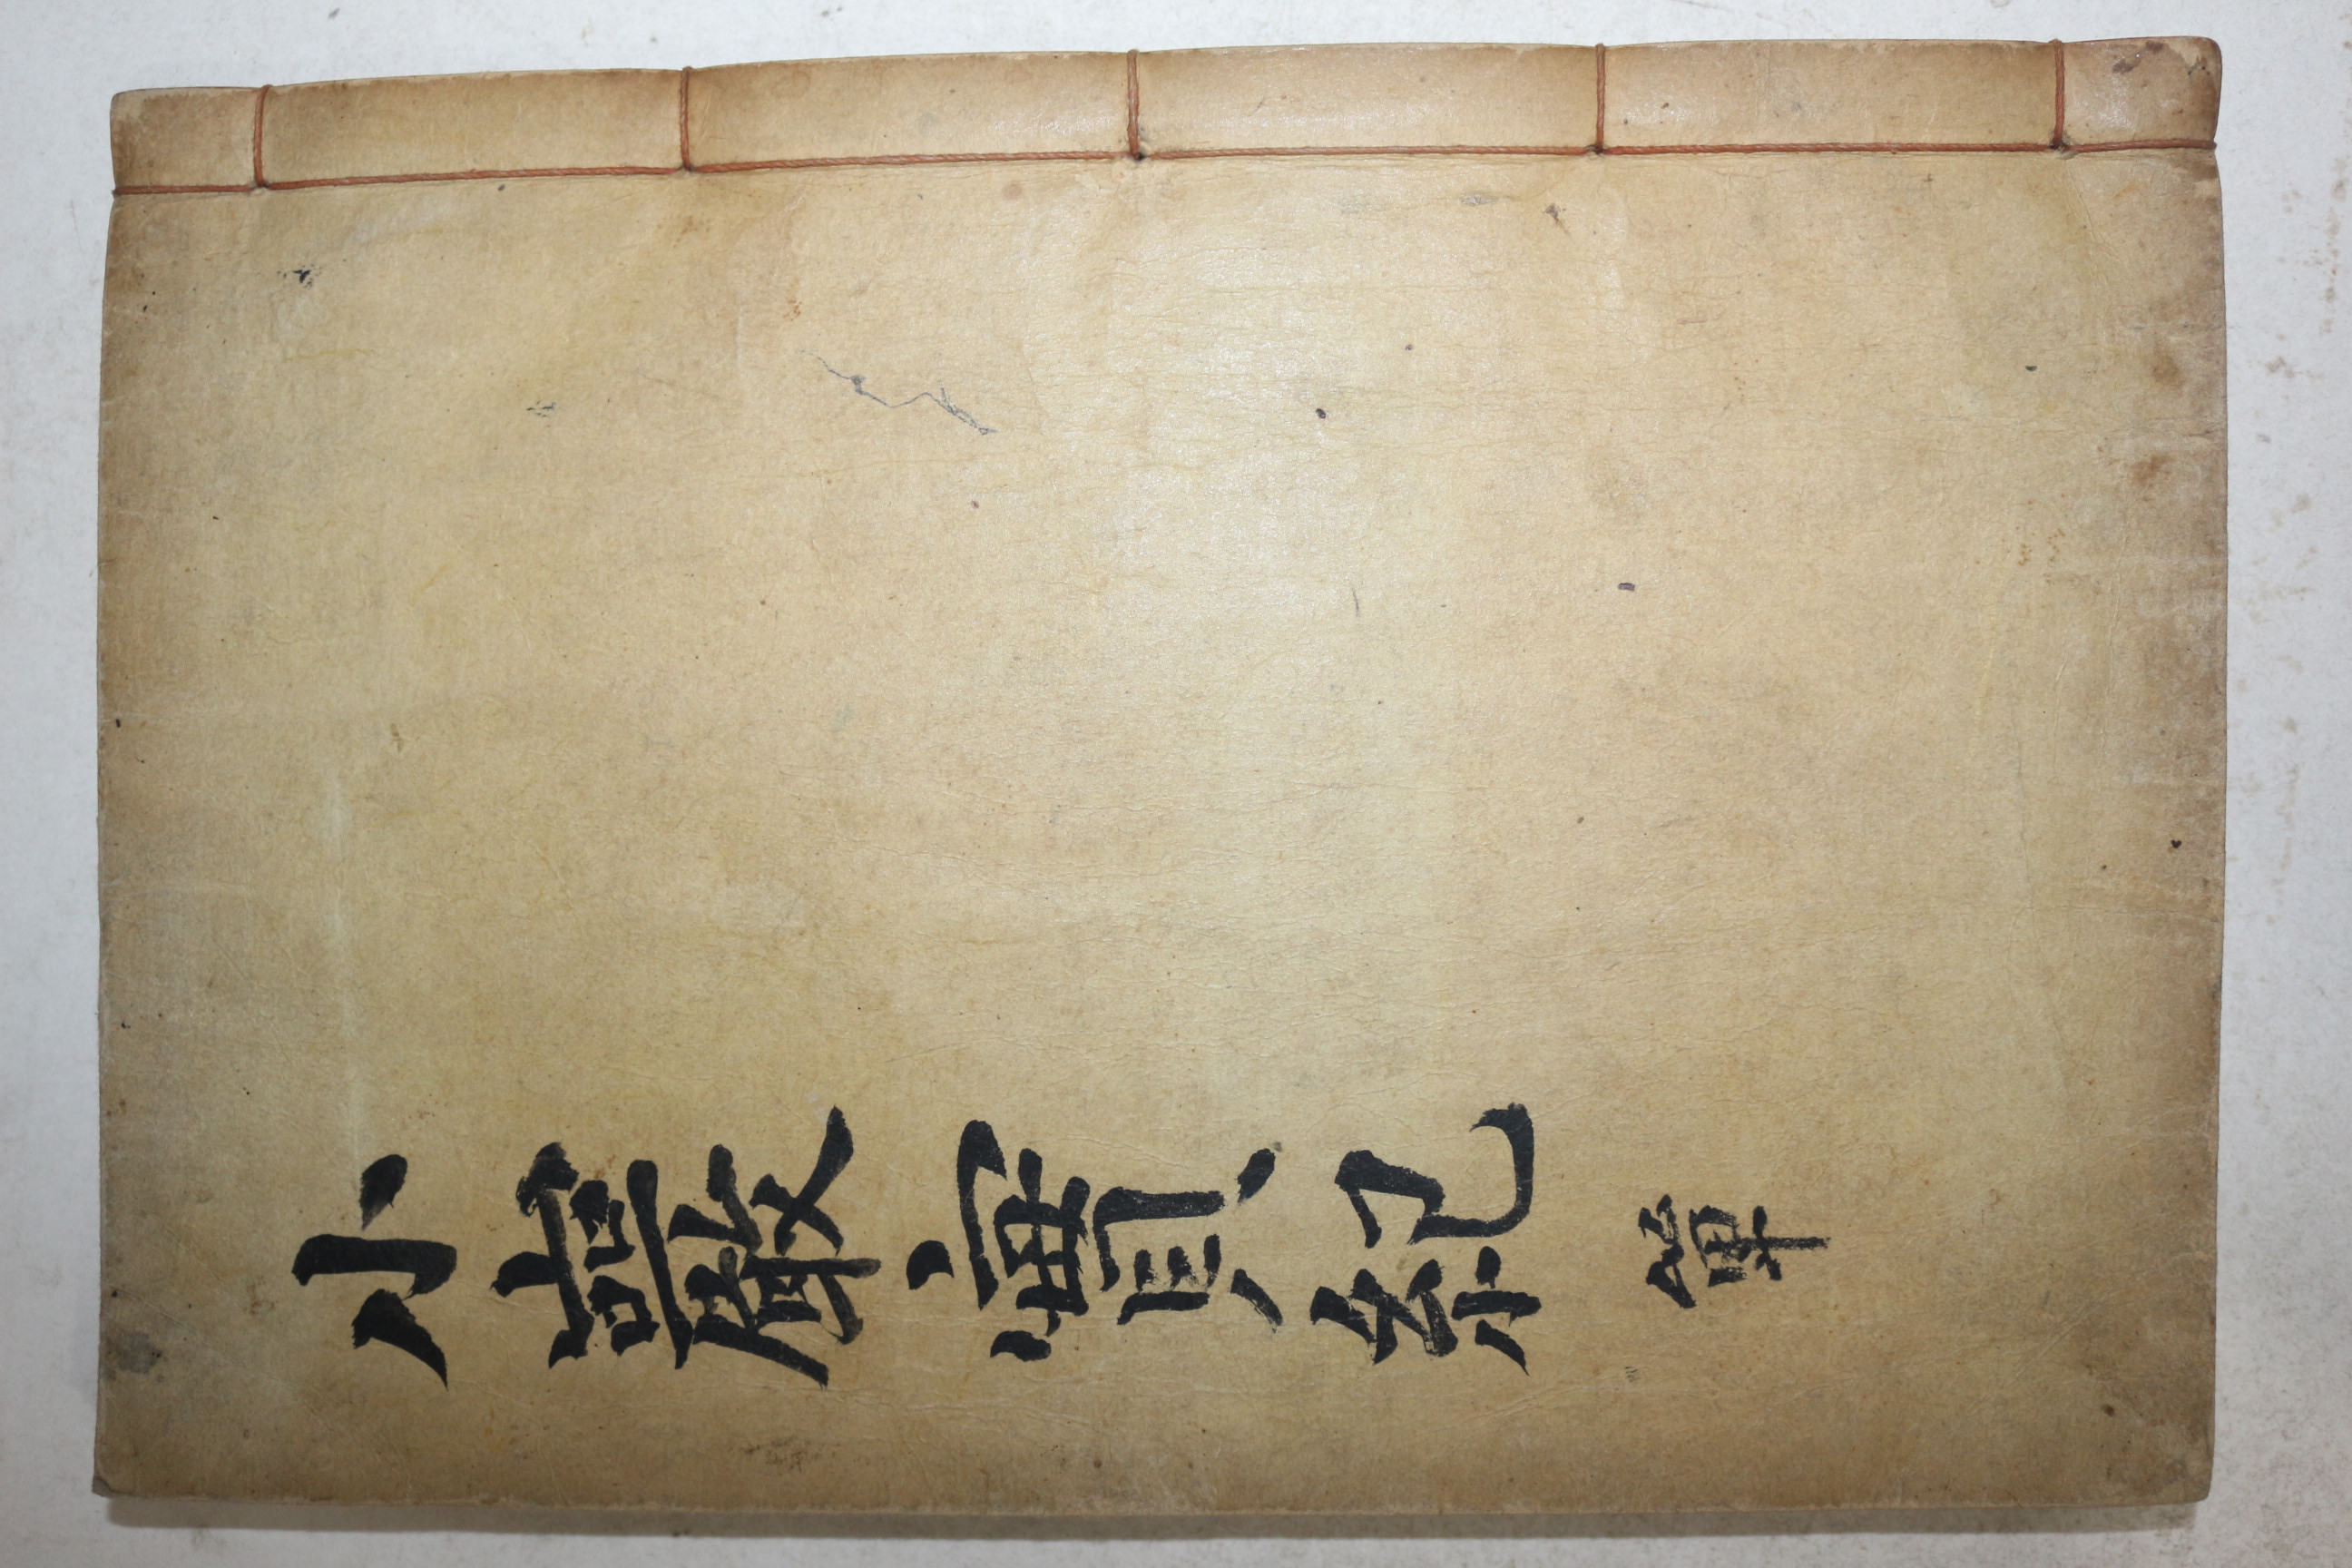 小巖實紀 單